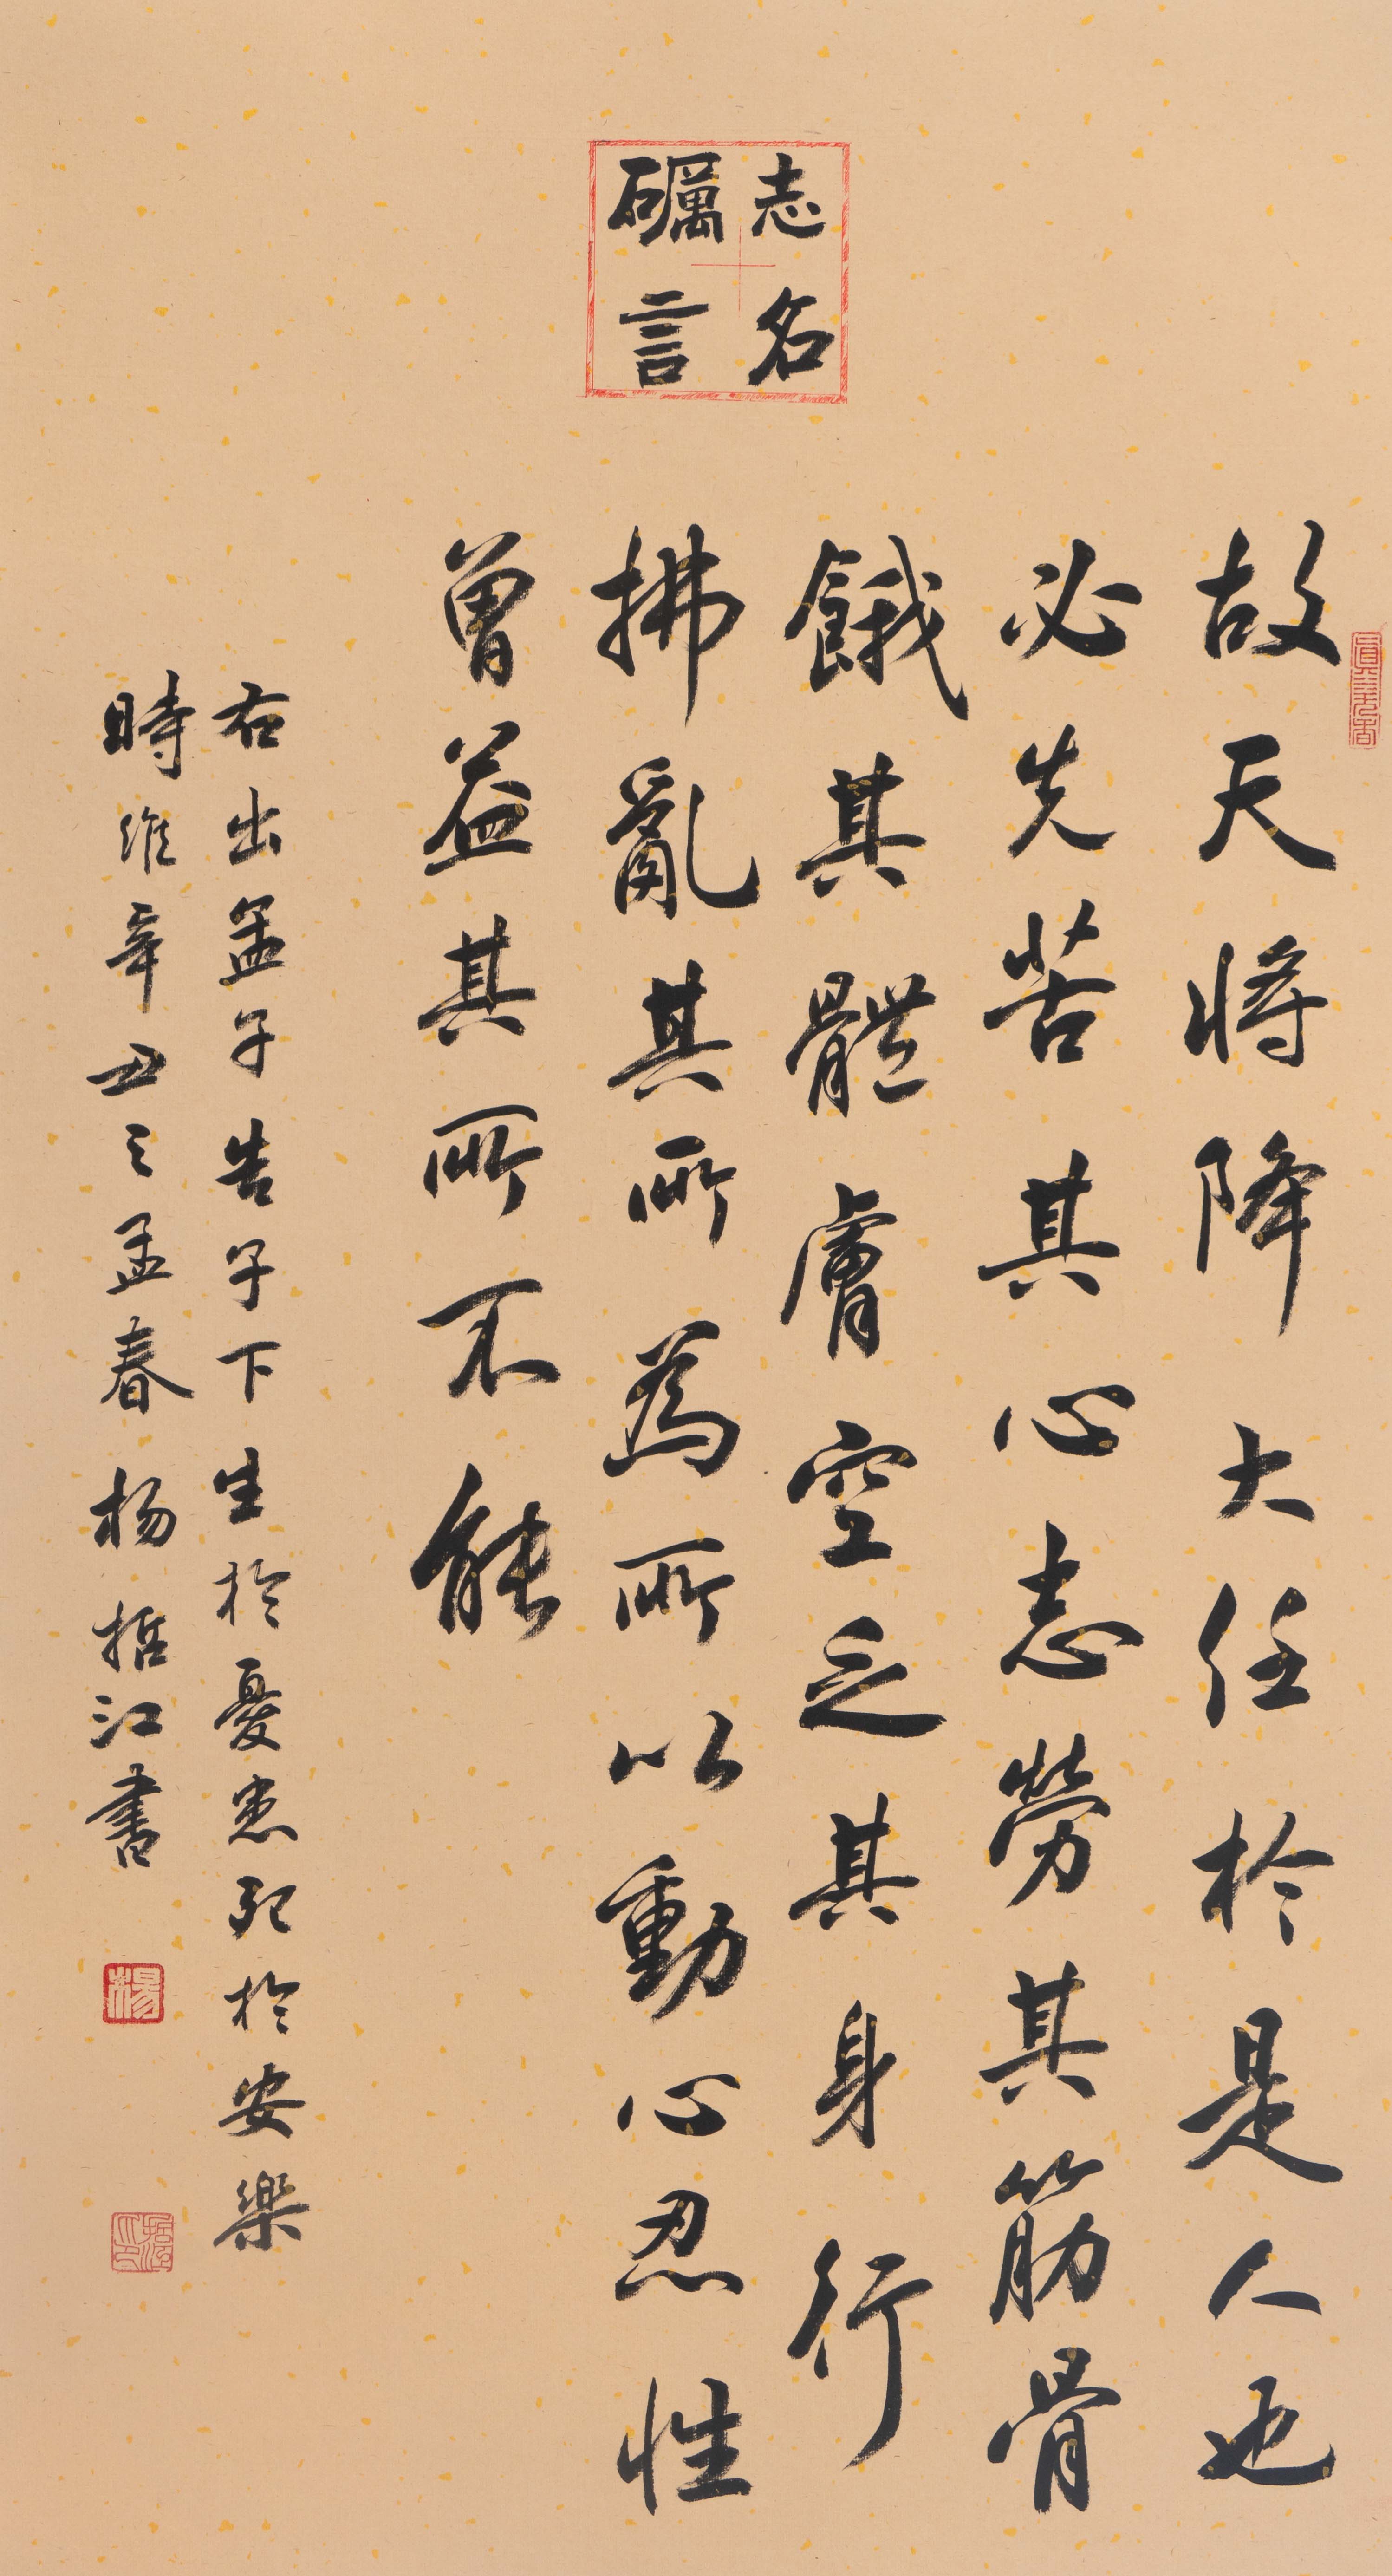 志名
礪言
故天將降大任於是人也
必先苦其心志勞其筋骨
餓其體膚空乏其身行
拂亂其所為所以動心忍性
曾益其所不能
右出孟子告子下生於憂患死於安樂
時維辛丑之孟春楊哲江書
楊